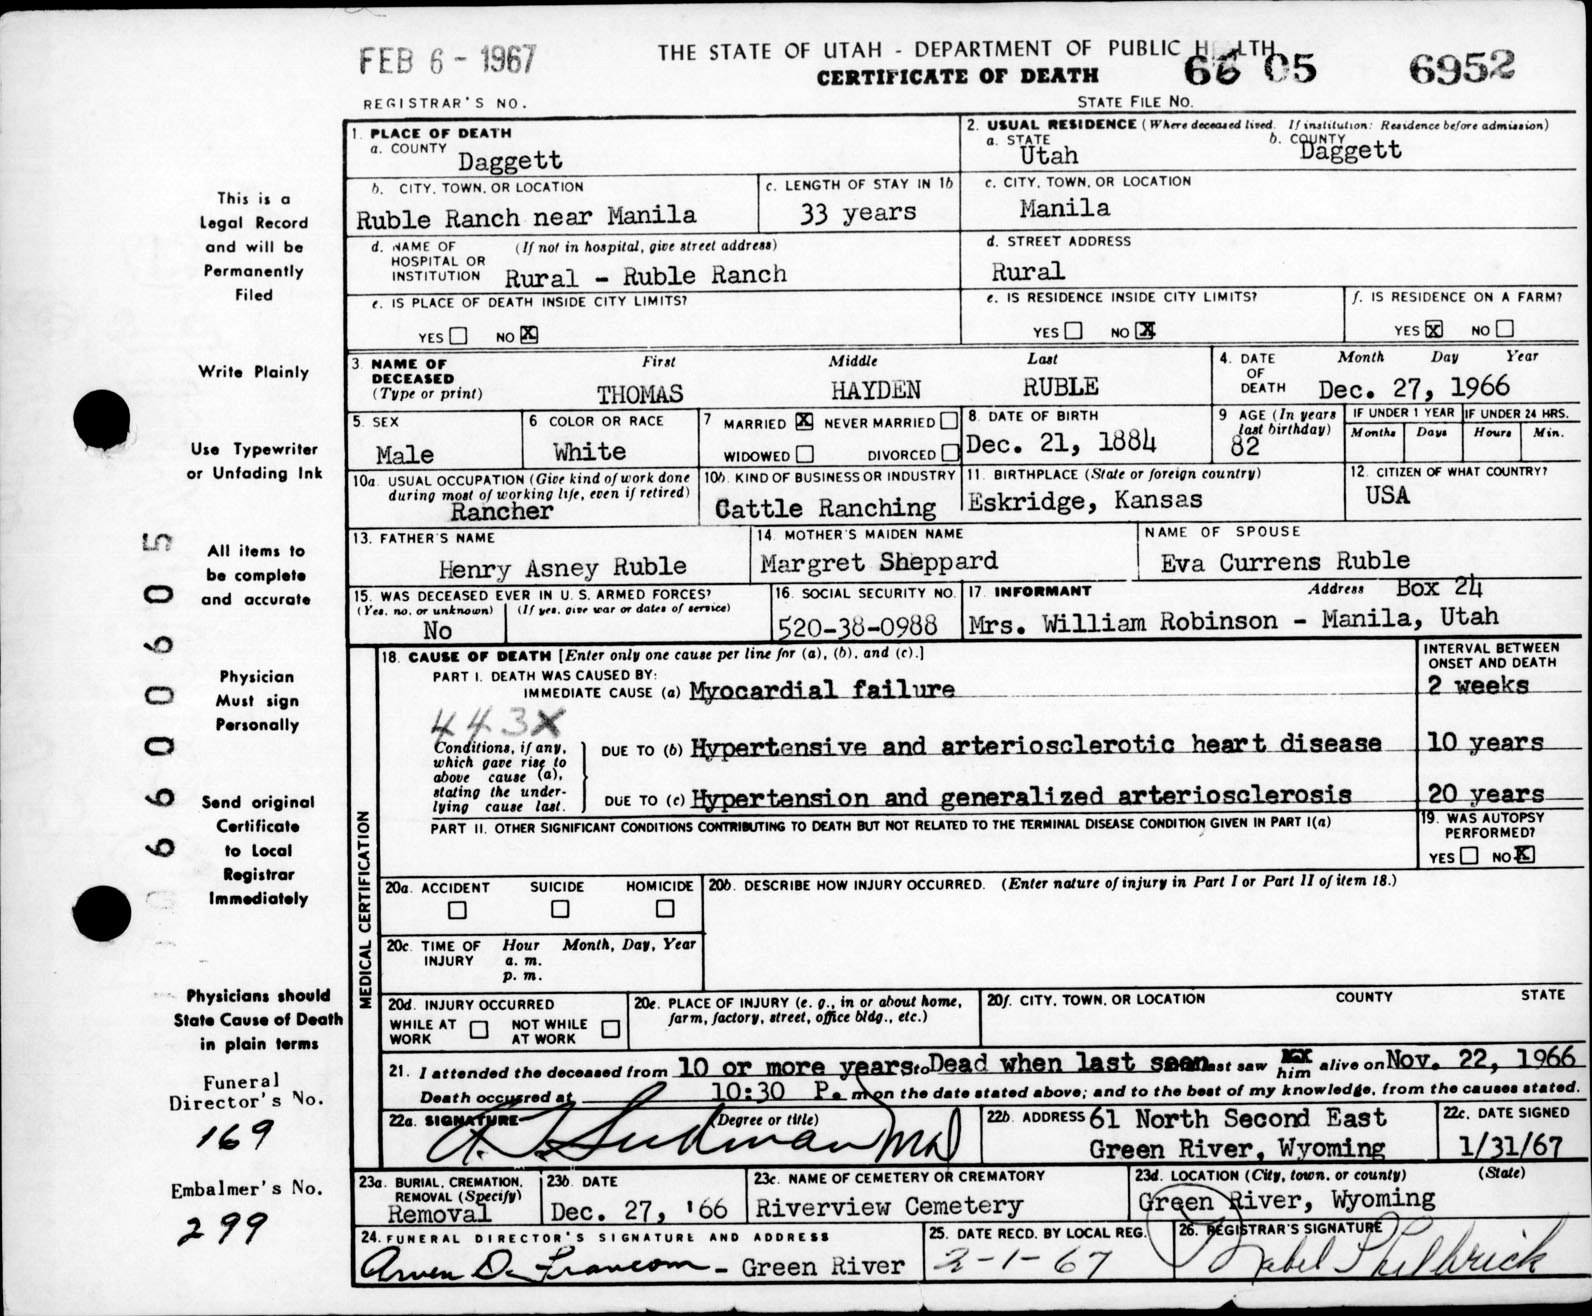 FEB 6 - 1967
THE STATE OF UTAH - DEPARTMENT OF PUBLIC HEALTH
CERTIFICATE OF DEATH
66 05 6952
REGISTRAR'S NO.
STATE FILE NO.
This is a
Legal Record
and will be
Permanently
Filed
Write Plainly
Use Typewriter
or Unfading Ink
All items to
be complete
and accurate
Physician
Must sign
Personally
Send original
Certificate
to Local
Registrar
Immediately
Physicians should
State Cause of Death
in plain terms
Funeral
Director's No.
169
Embalmer's No.
299
06600605
1. PLACE OF DEATH
a. COUNTY
Daggett
2. USUAL RESIDENCE (Where deceased lived. If institution: Residence before admission)
a. STATE Utah b. COUNTY Daggett
b. CITY, TOWN, OR LOCATION
Ruble Ranch near Manila
c. LENGTH OF STAY IN 1b
33 years
c. CITY, TOWN, OR LOCATION
Manila
d. NAME OF HOSPITAL OR INSTITUTION (If not in hospital, give street address)
Rural - Ruble Ranch
d. STREET ADDRESS
Rural
e. IS PLACE OF DEATH INSIDE CITY LIMITS?
YES NO X
e. IS RESIDENCE INSIDE CITY LIMITS?
YES NO X
f. IS RESIDENCE ON A FARM?
YES X NO
3. NAME OF DECEASED (Type or print)
First Middle Last
THOMAS HAYDEN RUBLE
4. DATE OF DEATH Month Day Year
Dec. 27, 1966
5. SEX
Male
6 COLOR OR RACE
White
7 MARRIED X NEVER MARRIED
WIDOWED DIVORCED
8. DATE OF BIRTH
Dec. 21, 1884
9 AGE (In years last birthday)
82
IF UNDER 1 YEAR
Months Days
IF UNDER 24 HRS.
Hours Min.
10a. USUAL OCCUPATION (Give kind of work done during most of working life, even if retired)
Rancher
10b. KIND OF BUSINESS OR INDUSTRY
Cattle Ranching
11. BIRTHPLACE (State or foreign country)
Eskridge, Kansas
12. CITIZEN OF WHAT COUNTRY?
USA
13. FATHER'S NAME
Henry Asney Ruble
14. MOTHER'S MAIDEN NAME
Margret Sheppard
NAME OF SPOUSE
Eva Currens Ruble
15. WAS DECEASED EVER IN U. S. ARMED FORCES?
(Yes, no, or unknown) (If yes, give war or dates of service)
No
16. SOCIAL SECURITY NO.
520-38-0988
17. INFORMANT Address Box 24
Mrs. William Robinson - Manila, Utah
MEDICAL CERTIFICATION
18. CAUSE OF DEATH [Enter only one cause per line for (a), (b), and (c).]
INTERVAL BETWEEN ONSET AND DEATH
PART I. DEATH WAS CAUSED BY:
IMMEDIATE CAUSE (a) Myocardial failure 2 weeks
443X
Conditions, if any, which gave rise to above cause (a), stating the underlying cause last.
DUE TO (b) Hypertensive and arteriosclerotic heart disease 10 years
DUE TO (c) Hypertension and generalized arteriosclerosis 20 years
PART II. OTHER SIGNIFICANT CONDITIONS CONTRIBUTING TO DEATH BUT NOT RELATED TO THE TERMINAL DISEASE CONDITION GIVEN IN PART I(a)
19. WAS AUTOPSY PERFORMED?
YES NO X
20a. ACCIDENT SUICIDE HOMICIDE
20b. DESCRIBE HOW INJURY OCCURRED. (Enter nature of injury in Part I or Part II of item 18.)
20c. TIME OF INJURY Hour Month, Day, Year
a. m.
p. m.
20d. INJURY OCCURRED
WHILE AT WORK NOT WHILE AT WORK
20e. PLACE OF INJURY (e. g., in or about home, farm, factory, street, office bldg., etc.)
20f. CITY, TOWN, OR LOCATION COUNTY STATE
21. I attended the deceased from 10 or more years to Dead when last seen last saw him alive on Nov. 22, 1966
Death occurred at 10:30 P. m on the date stated above; and to the best of my knowledge, from the causes stated.
22a. SIGNATURE (Degree or title)
MD
22b. ADDRESS 61 North Second East
Green River, Wyoming
22c. DATE SIGNED
1/31/67
23a. BURIAL, CREMATION, REMOVAL (Specify)
Removal
23b. DATE
Dec. 27, '66
23c. NAME OF CEMETERY OR CREMATORY
Riverview Cemetery
23d. LOCATION (City, town, or county) (State)
Green River, Wyoming
24. FUNERAL DIRECTOR'S SIGNATURE AND ADDRESS
Arven D. Francom - Green River
25. DATE RECD. BY LOCAL REG.
2-1-67
26. REGISTRAR'S SIGNATURE
Mabel Philbrick